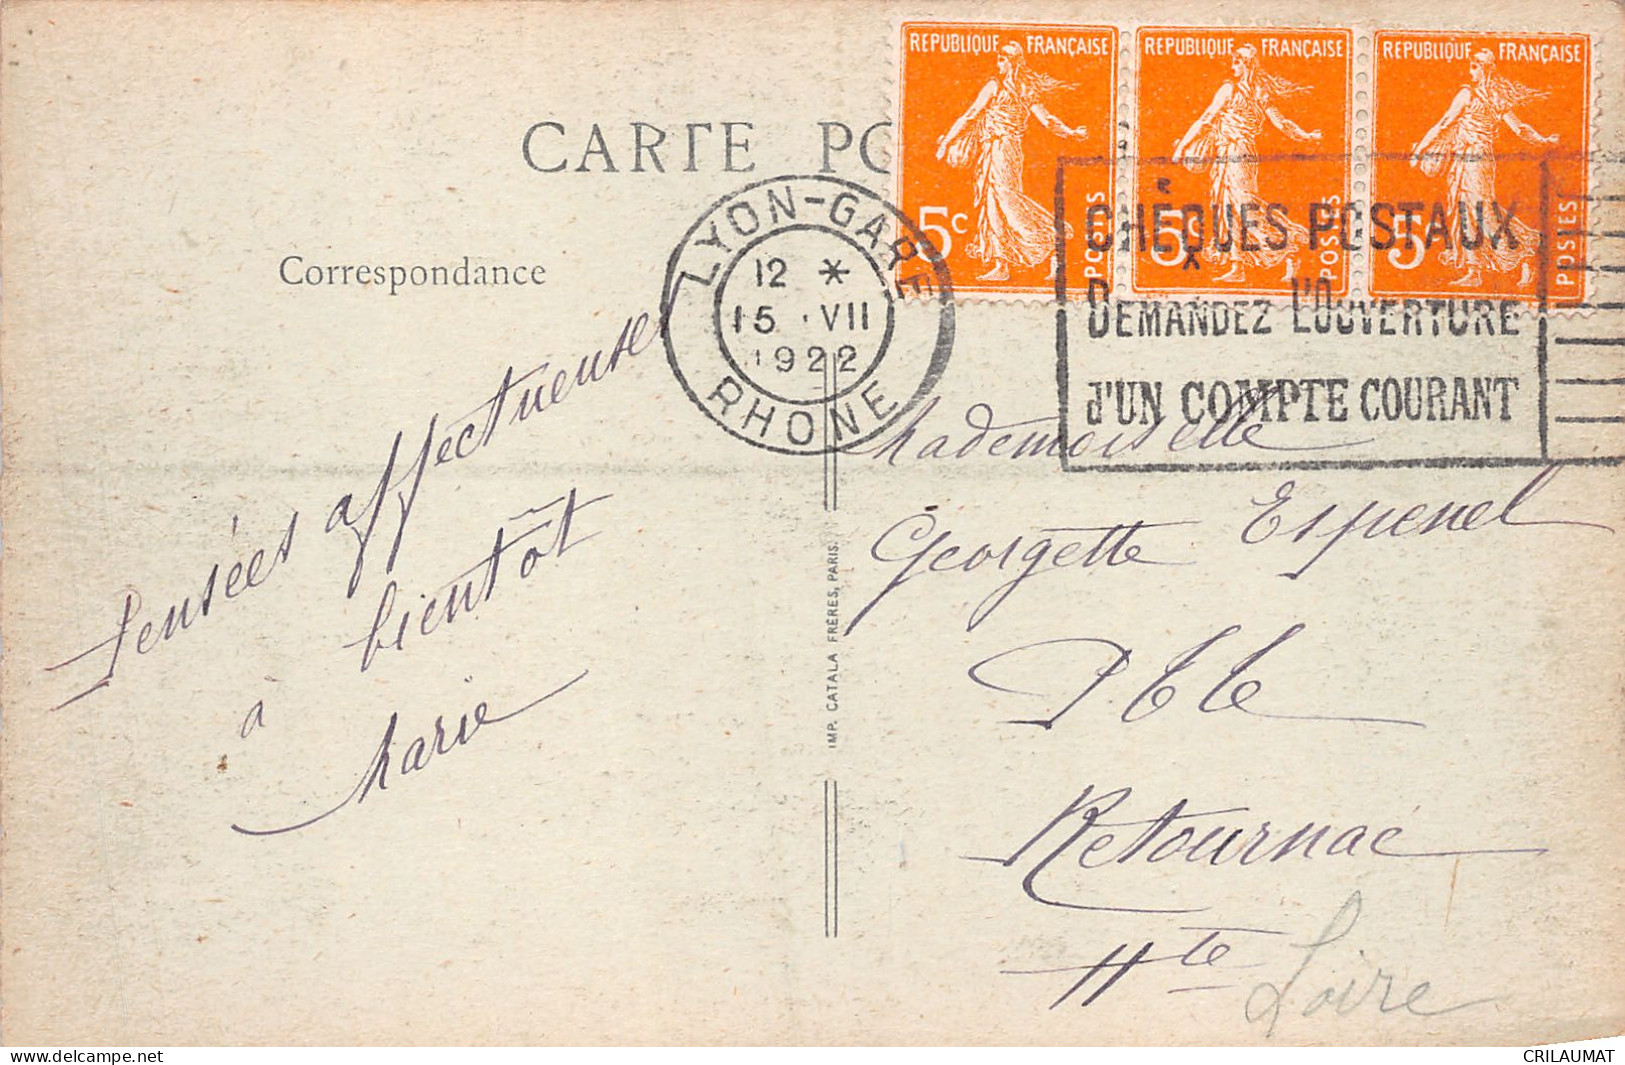 CARTE PO
REPUBLIQUE FRANÇAISE
5c
POSTES
REPUBLIQUE FRANÇAISE
5c
POSTES
REPUBLIQUE FRANÇAISE
5c
POSTES
LYON-GARE
12 *
15 · VII
1922
RHONE
CHÈQUES POSTAUX
DEMANDEZ L'OUVERTURE
d'UN COMPTE COURANT
Correspondance
Pensées affectueuses
à bientôt
Marie
IMP. CATALA FRÈRES, PARIS.
Mademoiselle
Georgette Espenel
Retournac
Hte Loire
www.delcampe.net
CRILAUMAT